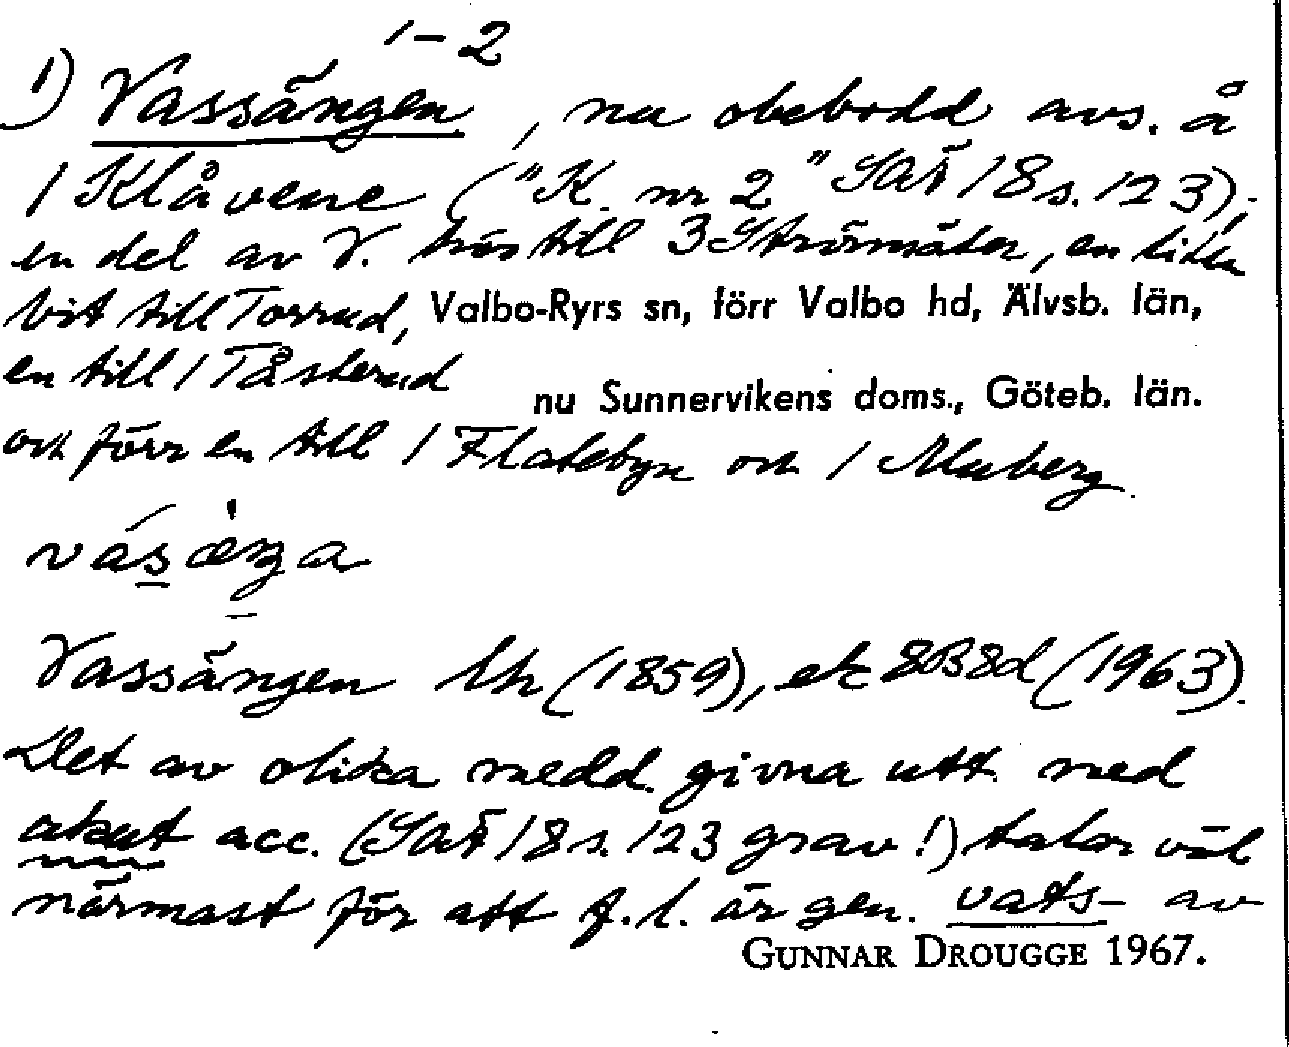 1-2
1) Vassängen, nu obebodd avs. å
1 Klåvene ("K. nr 2" SOÄ 18 s. 123);
en del av V. hör till 3 Strömsäter, en liten
bit till Torrud, Valbo-Ryrs sn, förr Valbo hd, Älvsb. län,
en till 1 Tåsterud
nu Sunnervikens doms., Göteb. län.
och förr en till 1 Flatebyn och 1 Muberg.
vásæŋa
Vassängen Lh (1859), ek 8B8d (1963).
Det av olika medd. givna utt. med
akut acc. (SOÄ 18 s. 123 grav!) talar väl
närmast för att f.l. är gen. vats- av
GUNNAR DROUGGE 1967.